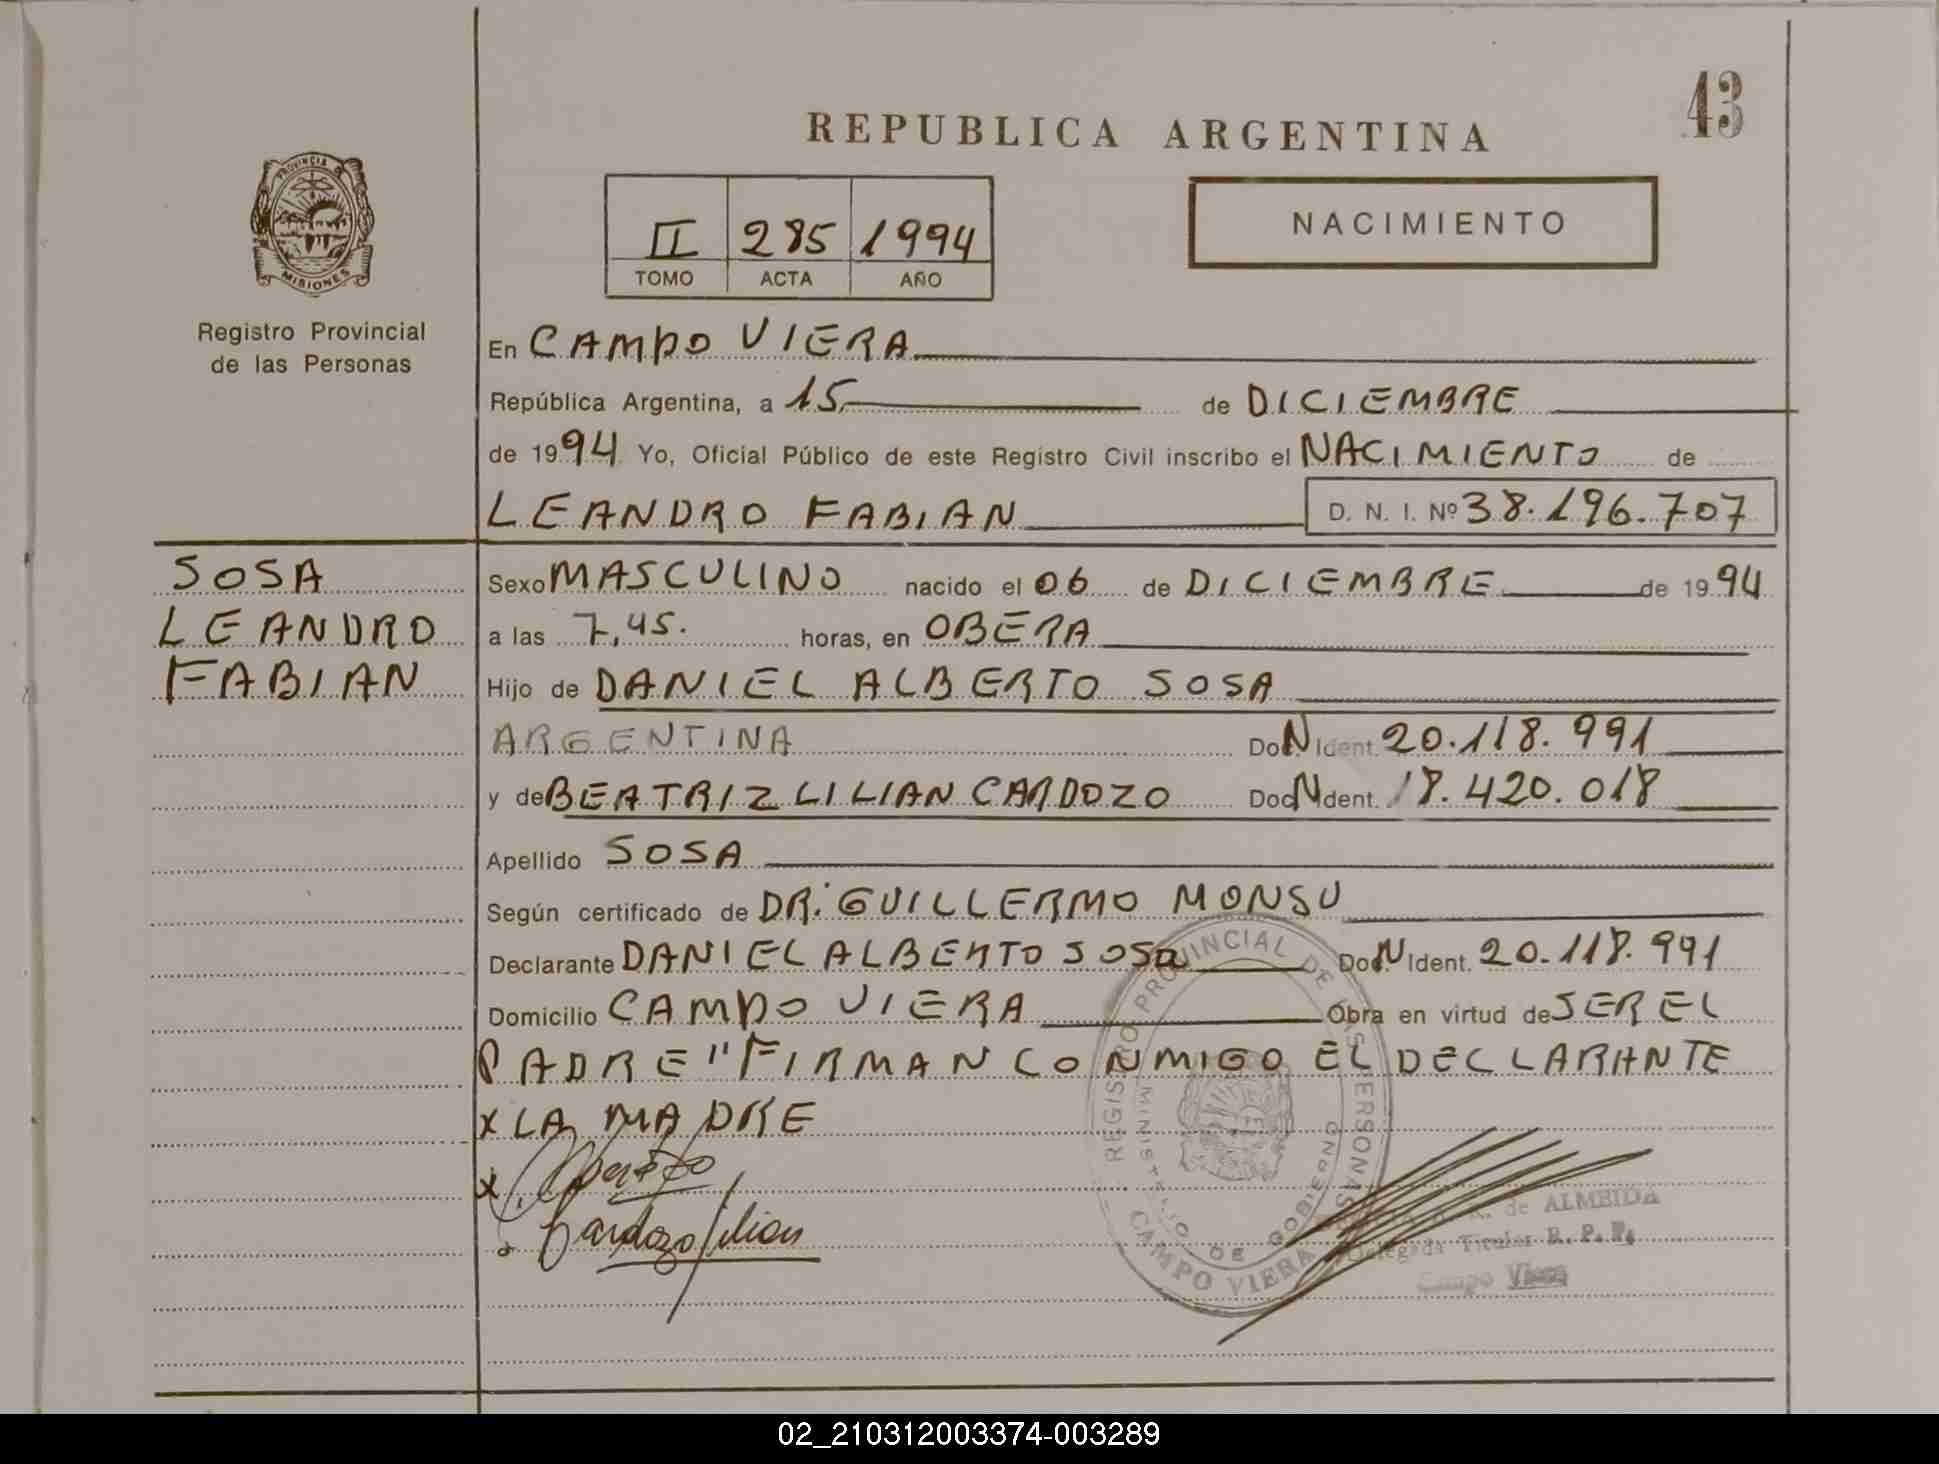 43
REPUBLICA ARGENTINA
PROVINCIA DE
MISIONES
Registro Provincial
de las Personas
II 285 1994
TOMO ACTA AÑO
NACIMIENTO
En CAMPO VIERA
República Argentina, a 15 de DICIEMBRE
de 1994 Yo, Oficial Público de este Registro Civil inscribo el NACIMIENTO de
LEANDRO FABIAN D. N. I. Nº 38.196.707
SOSA
LEANDRO
FABIAN
Sexo MASCULINO nacido el 06 de DICIEMBRE de 1994
a las 7,45. horas, en OBERA
Hijo de DANIEL ALBERTO SOSA
ARGENTINA Doc.N Ident. 20.118.991
y de BEATRIZ LILIAN CARDOZO Doc.N Ident. 18.420.018
Apellido SOSA
Según certificado de DR. GUILLERMO MONSU
Declarante DANIEL ALBERTO SOSA Doc.N Ident. 20.118.991
Domicilio CAMPO VIERA Obra en virtud de SER EL
PADRE" FIRMAN CONMIGO EL DECLARANTE
X LA MADRE
X
Cardozo Lilian
REGISTRO PROVINCIAL DE LAS PERSONAS
MINISTERIO DE GOBIERNO
CAMPO VIERA
de ALMEIDA
Delegada Titular R. P. P.
Campo Viera
02_210312003374-003289